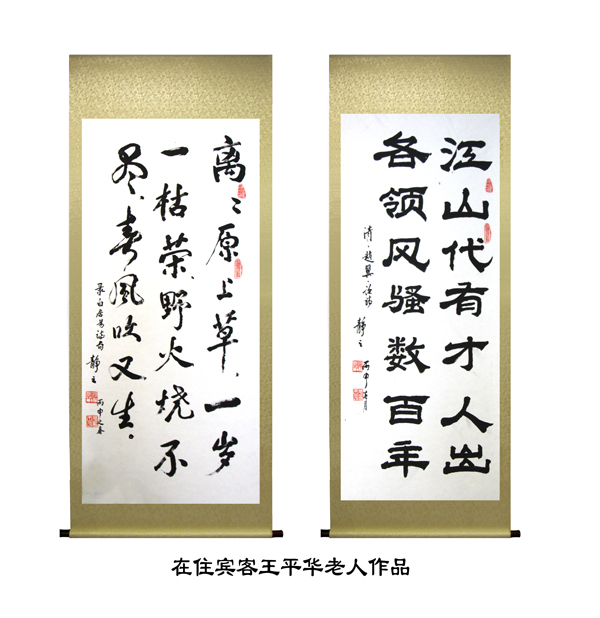 离〻原上草，一岁
一枯荣，野火烧不
尽，春風吹又生。
录白居易诗句 静之
丙申之春
江山代有才人出
各领风骚数百年
清·趙翼·论诗 静之
丙申春月
在住宾客王平华老人作品